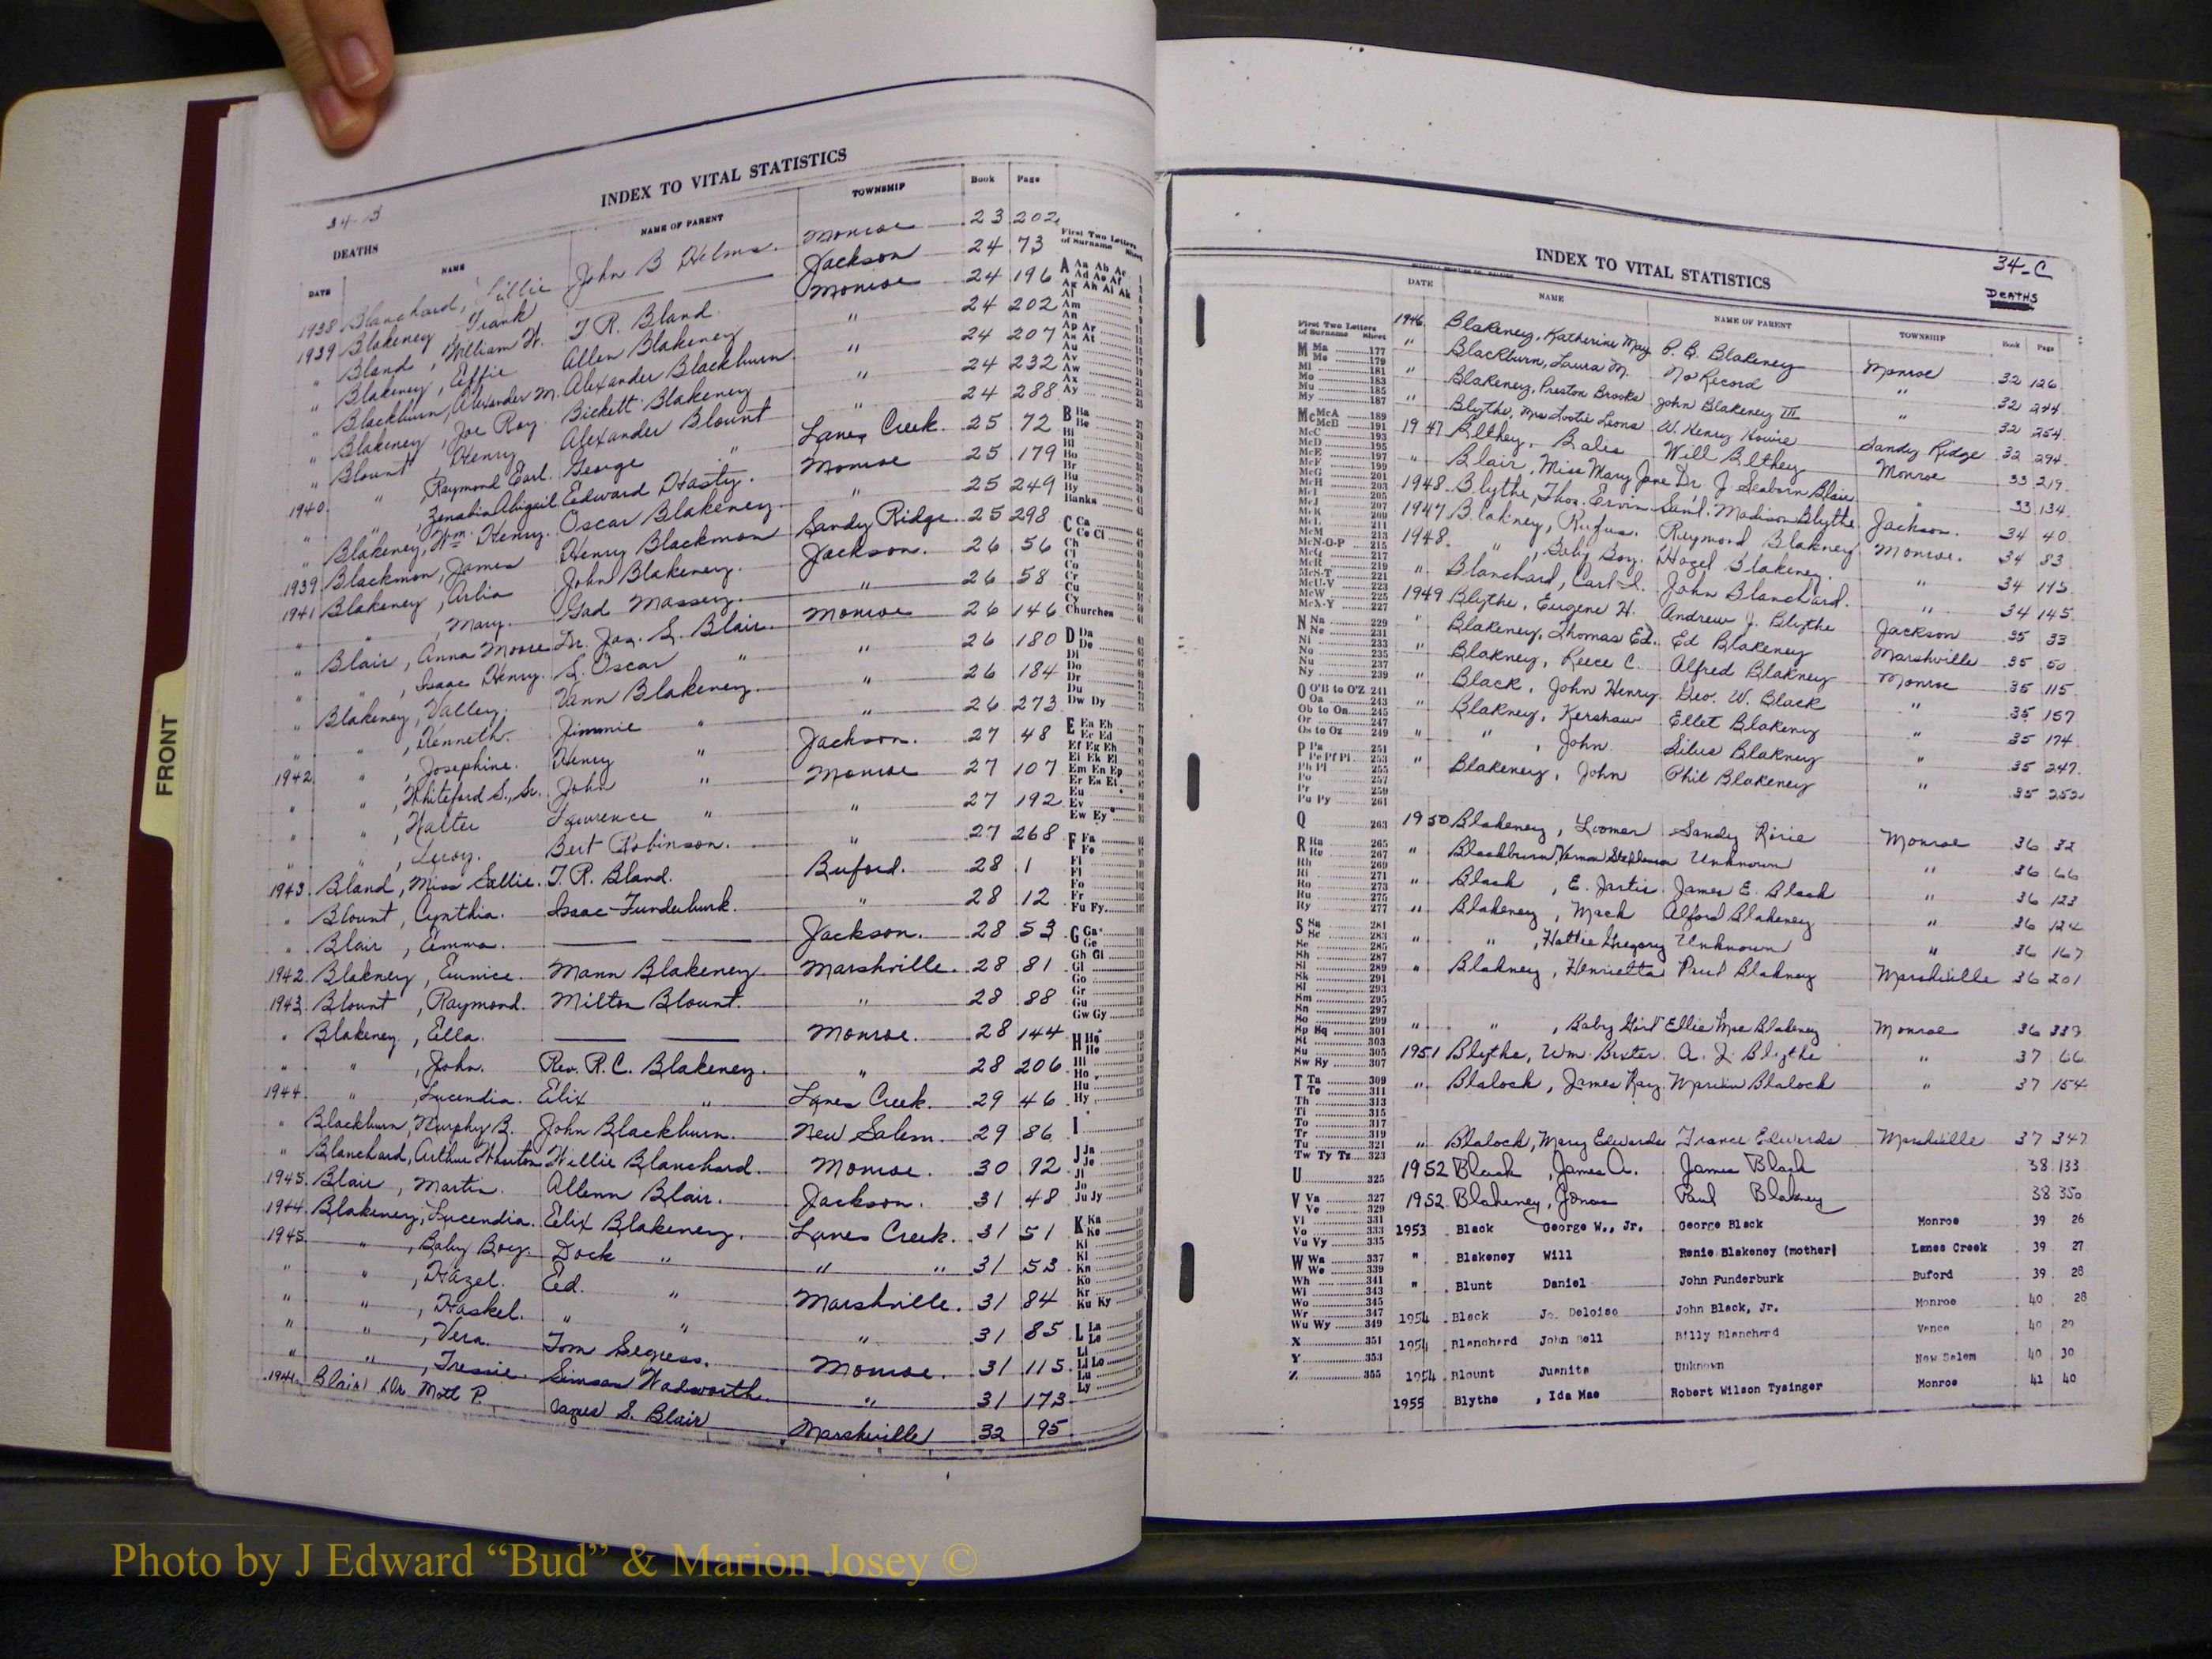 INDEX TO VITAL STATISTICS
34-B
DEATHS
DATE NAME NAME OF PARENT TOWNSHIP Book Page
1938 Blanchard, Lillie John B Helms. Monroe 23 202
1939 Blakeney Frank —— Jackson 24 73
" Bland, William W. T. R. Bland Monroe 24 196
" Blakeney, Effie Allen Blakeney " 24 202
" Blackburn, Alexander M. Alexander Blackburn " 24 207
" Blakeney, Joe Roy. Bickett Blakeney " 24 232
" Blount, Henry Alexander Blount " 24 288
1940 " , Raymond Earl. George " Lanes Creek. 25 72
" " , Zenobia Abigail Edward Hasty. Monroe 25 179
" Blakeney, Wm. Henry. Oscar Blakeney " 25 249
1939 Blackmon, James Henry Blackmon Sandy Ridge. 25 298
1941 Blakeney, Arlia John Blakeney. Jackson. 26 56
" " , Mary. Gad Massey. " 26 58
" Blair, Anna Moore Dr. Jas. S. Blair. Monroe 26 146
" " , Isaac Henry. S. Oscar " " 26 180
" Blakeney, Valley. Vann Blakeney. " 26 184
" " , Kenneth. Jimmie " " 26 273
1942 " , Josephine. Henry " Jackson. 27 48
" " , Whiteford S., Sr. John " Monroe 27 107
" " , Walter Lawrence " " 27 192
" " , Leroy. Bert Robinson. " 27 268
1943 Bland, Miss Sallie. T. R. Bland. Buford. 28 1
" Blount, Cynthia. Isaac Funderburk. " 28 12
" Blair, Emma. —— Jackson. 28 53
1942 Blakney, Eunice. Mann Blakeney. Marshville. 28 81
1943 Blount, Raymond. Milton Blount. " 28 88
" Blakeney, Ella. —— Monroe. 28 144
" " , John. Rev. R. C. Blakeney. " 28 206
1944 " , Lucendia. Elix " Lanes Creek. 29 46
" Blackburn, Murphy B. John Blackburn. New Salem. 29 86
" Blanchard, Arthur Wharton Willie Blanchard. Monroe. 30 92
1945 Blair, Martin. Allenn Blair. Jackson. 31 48
1944 Blakeney, Lucendia. Elix Blakeney. Lanes Creek. 31 51
1945 " , Baby Boy. Dock " " " 31 53
" " , Hazel. Ed. " Marshville. 31 84
" " , Haskel. " " " 31 85
" " , Vera. Tom Segress. Monroe. 31 115
" " , Tressie. Simson Wadsworth. " 31 173
Blair, Dr. Mott P. James S. Blair Marshville 32 95
First Two Letters of Surname Sheet
A Aa Ab Ac
Ad Ae Af
Ag Ah Ai Ak
Al
Am
An
Ap Ar
As At
Au
Av
Aw
Ax
Ay
B Ba
Be
Bi
Bl
Bo
Br
Bu
By
Banks
C Ca
Ce Ci
Ch
Cl
Co
Cr
Cu
Cy
Churches
D Da
De
Di
Do
Dr
Du
Dw Dy
E Ea Eb
Ec Ed
Ef Eg Eh
Ei Ek El
Em En Ep
Er Es Et
Eu
Ev
Ew Ey
F Fa
Fe
Fi
Fl
Fo
Fr
Fu Fy
G Ga
Ge
Gh Gi
Gl
Go
Gr
Gu
Gw Gy
H Ha
He
Hi
Ho
Hu
Hy
I
J Ja
Je
Ji
Jo
Ju Jy
K Ka
Ke
Ki
Kl
Kn
Ko
Kr
Ku Ky
L La
Le
Li
Ll Lo
Lu
Ly
FRONT
INDEX TO VITAL STATISTICS
34-C
DEATHS
DATE NAME NAME OF PARENT TOWNSHIP Book Page
1946 Blakeney, Katherine May P. B. Blakeney Monroe 32 126
" Blackburn, Laura M. No Record " 32 244
" Blakeney, Preston Brooks John Blakeney III " 32 254
" Blythe, Mrs Lootie Leona W. Henry Howie Sandy Ridge 32 294
1947 Blthey, Bales Will Blthey Monroe 33 219
" Blair, Miss Mary Jane Dr. J. Seaborn Blair " 33 134
1948 Blythe, Thos. Ervin Saml. Madison Blythe Jackson. 34 40
1947 Blakney, Rufus. Raymond Blakney Monroe. 34 83
1948 " , Baby Boy. Hazel Blakeney. " 34 145
" Blanchard, Carl L. John Blanchard. " 34 145
1949 Blythe, Eugene H. Andrew J. Blythe Jackson 35 33
" Blakeney, Thomas Ed. Ed Blakeney Marshville 35 50
" Blakney, Reece C. Alfred Blakney Monroe 35 115
" Black, John Henry. Geo. W. Black " 35 157
" Blakney, Kershaw Ellet Blakeney " 35 174
" " , John. Silus Blakney " 35 247
" Blakeney, John Phil Blakeney " 35 252
1950 Blakeney, Loomer Sandy Ririe Monroe 36 32
" Blackburn, Vernon Stephenson Unknown " 36 66
" Black, E. Jartis James E. Black " 36 123
" Blakeney, Mack Alford Blakeney " 36 124
" " , Hattie Gregory Unknown " 36 167
" Blakney, Henrietta Paul Blakney Marshville 36 201
" " , Baby Girl Ellie Mae Blakeney Monroe 36 339
1951 Blythe, Wm. Baxter. A. J. Blythe " 37 66
" Blalock, James Ray Marvin Blalock " 37 154
" Blalock, Mary Edwards France Edwards Marshville 37 347
1952 Black, James A. James Black 38 133
1952 Blakeney, Jonas Paul Blakney 38 350
1953 Black George W., Jr. George Black Monroe 39 26
" Blakeney Will Renie Blakeney (mother) Lanes Creek 39 27
" Blunt Daniel John Funderburk Buford 39 28
1954 Black Jo. Deloise John Black, Jr. Monroe 40 28
1954 Blanchard John Bell Billy Blanchard Vance 40 29
1954 Blount Juanita Unknown New Salem 40 30
1955 Blythe , Ida Mae Robert Wilson Tysinger Monroe 41 40
First Two Letters of Surname Sheet
M Ma 177
Me 179
Mi 181
Mo 183
Mu 185
My 187
Mc McA 189
McB 191
McC 193
McD 195
McE 197
McF 199
McG 201
McH 203
McI 205
McJ 207
McK 209
McL 211
McM 213
McN-O-P 215
McQ 217
McR 219
McS-T 221
McU-V 223
McW 225
McX-Y 227
N Na 229
Ne 231
Ni 233
No 235
Nu 237
Ny 239
O O'B to O'Z 241
Oa 243
Ob to On 245
Or 247
Os to Oz 249
P Pa 251
Pe Pf Pi 253
Ph Pl 255
Po 257
Pr 259
Pu Py 261
Q 263
R Ra 265
Re 267
Rh 269
Ri 271
Ro 273
Ru 275
Ry 277
S Sa 281
Sc 283
Se 285
Sh 287
Si 289
Sk 291
Sl 293
Sm 295
Sn 297
So 299
Sp Sq 301
St 303
Su 305
Sw Sy 307
T Ta 309
Te 311
Th 313
Ti 315
To 317
Tr 319
Tu 321
Tw Ty Tz 323
U 325
V Va 327
Ve 329
Vi 331
Vo 333
Vu Vy 335
W Wa 337
We 339
Wh 341
Wi 343
Wo 345
Wr 347
Wu Wy 349
X 351
Y 353
Z 355
Photo by J Edward “Bud” & Marion Josey ©